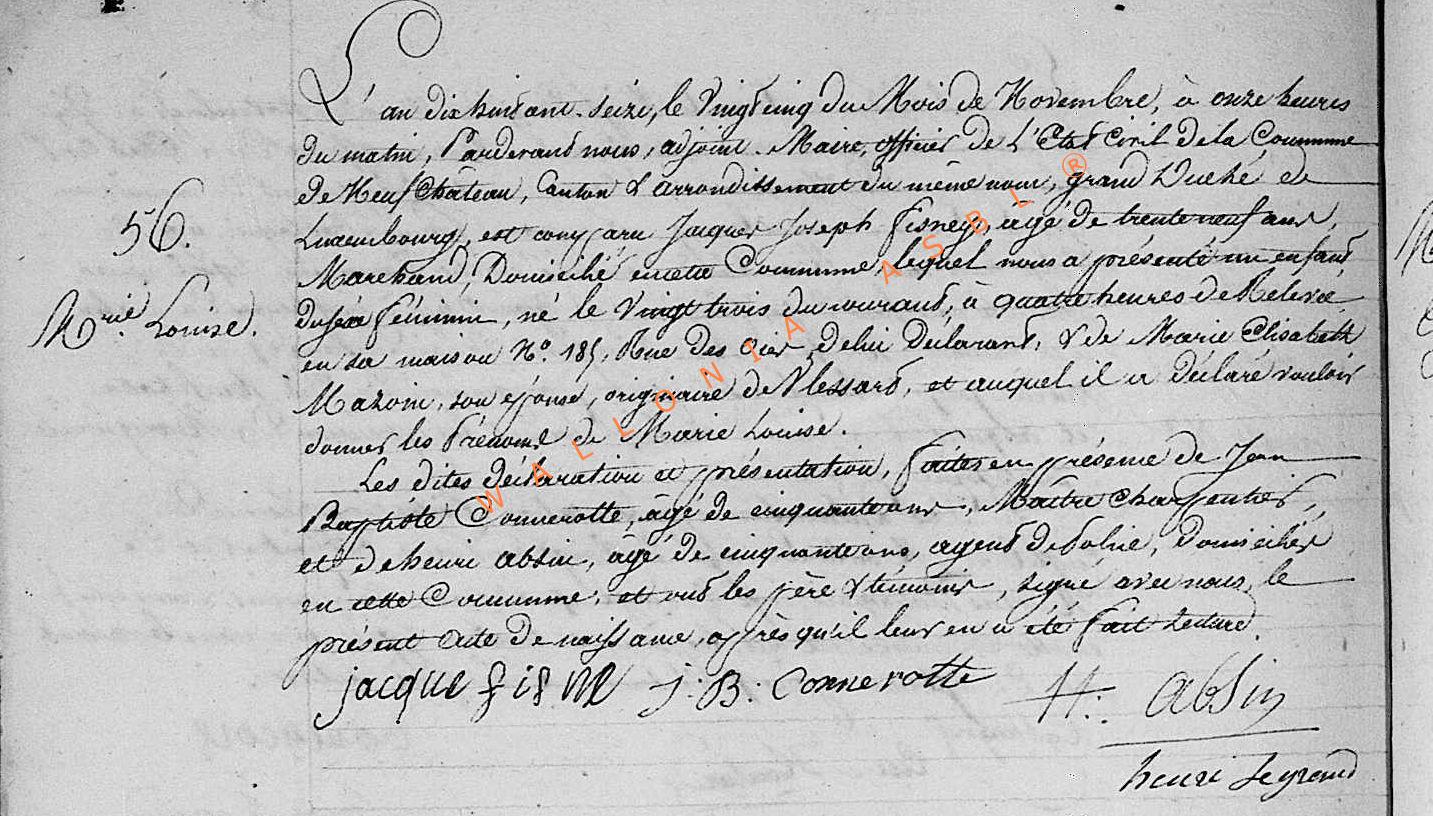 L'an dix huit cent seize, le Vingt cinq du Mois de Novembre, à onze heures
du matin, Pardevant nous, adjoint-Maire, officier de L'Etat Civil de la Commune
de Neufchâteau, Canton & arrondissement du même nom, grand Duché de
56.
Luxembourg, est comparu Jacques Joseph fisney, agé de trente neuf ans,
Marchand, Domicilié en cette Commune, lequel nous a présenté un enfant
Mrie Louise.
du sexe féminin, né le Vingt trois du courant, à quatre heures de Relevée
en sa maison No. 185, Rue des de lui Déclarant, & de Marie Elisabeth
Mazoin, son épouse, originaire de Vlessart, et auquel il a déclaré vouloir
donner les Prénoms de Marie Louise.
Les dites déclaration et présentation, faites en présence de Jean
Baptiste Connerotte, âgé de cinquante ans, Maître Charpentier,
et de henri absin, âgé de cinquante ans, agent de Police, Domiciliés
en cette Commune, et ont les père & témoins, signé avec nous, le
présent acte de naissance, après qu'il leur en a été fait Lecture.
jacque fisne J: B: Connerotte H: absin
henri Legrand
WALLONIA ASBL ®